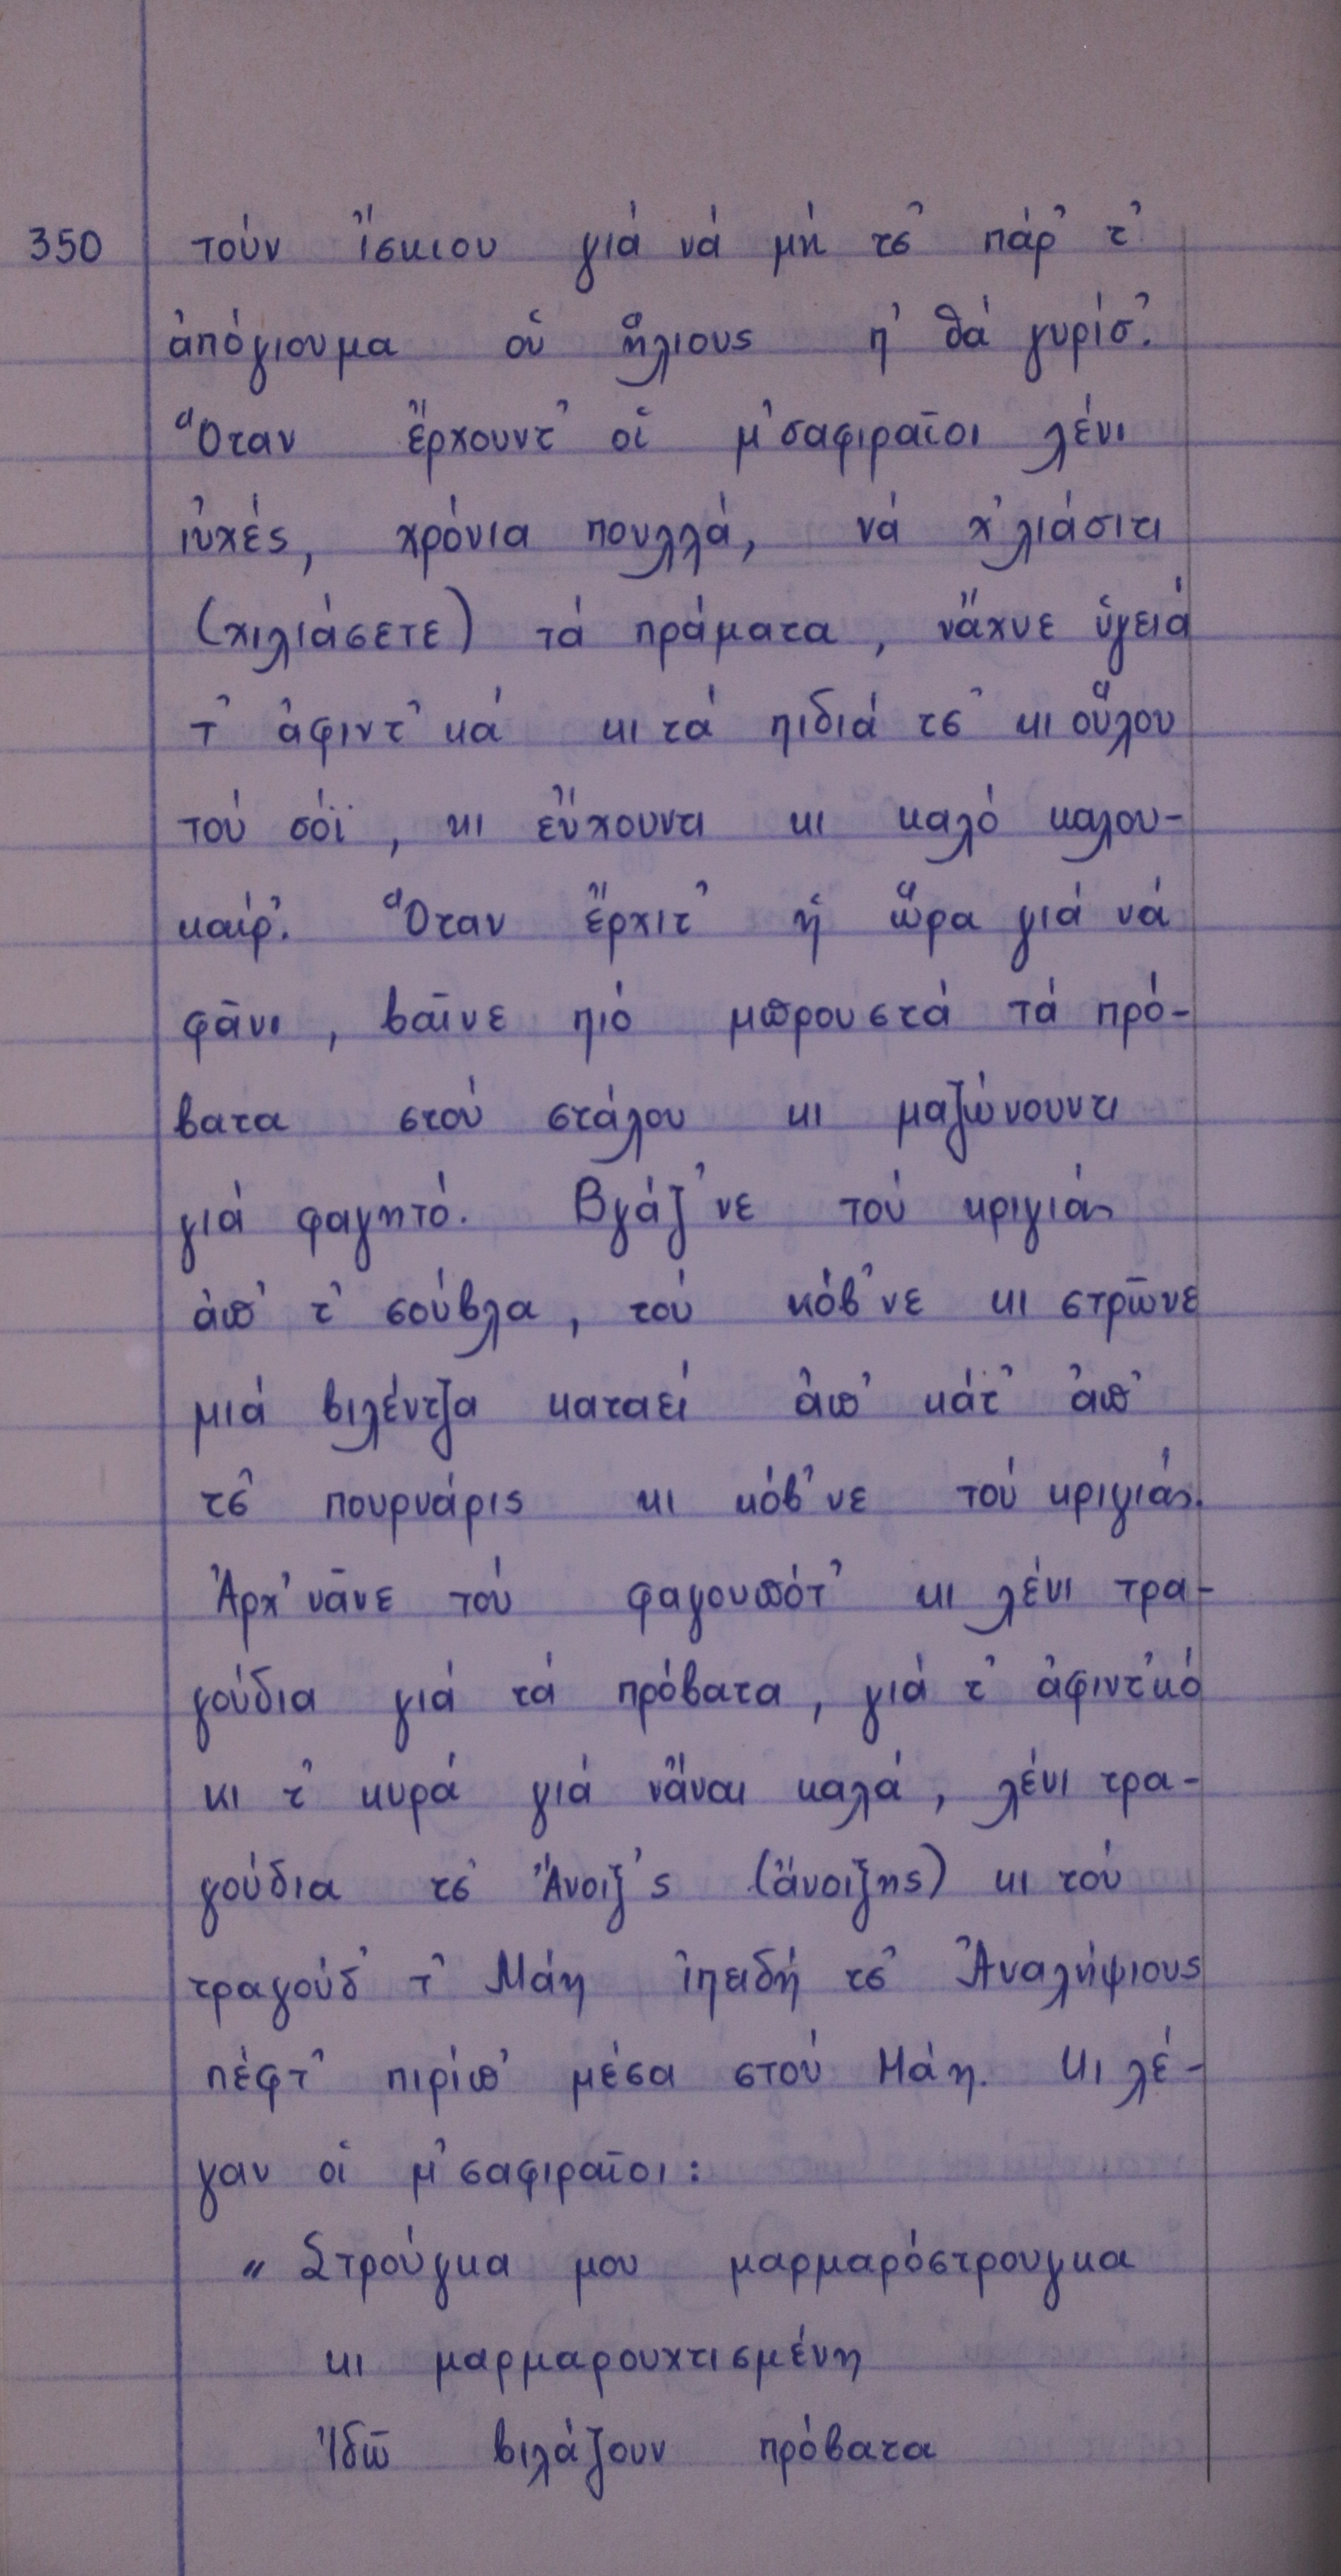 350 τούν ἴσκιου γιά νά μή τσ' πάρ' τ'
ἀπόγιουμα οὑ ἥλιους π' θά γυρίσ'.
Ὅταν ἔρχουντ' οἱ μ'σαφιραῖοι λένι
ιὐχές, χρόνια πουλλά, νά χ'λιάσιτι
(χιλιάσετε) τά πράματα, νἄχνε ὑγειά
τ' ἀφιντ'κά κι τά πιδιά τσ' κι οὕλου
τού σόϊ, κι εὔχουντι κι καλό καλου-
καίρ'. Ὅταν ἔρχιτ' ἡ ὥρα γιά νά
φᾶνι, βαῖνε πιό μπρουστά τά πρό-
βατα στού στάλου κι μαζώνουντι
γιά φαγητό. Βγάζ'νε τού κριγιάς
ἀπ' τ' σούβλα, τού κόβ'νε κι στρῶνε
μιά βιλέντζα καταεί ἀπ' κάτ' ἀπ'
τσ' πουρνάρις κι κόβ'νε τού κριγιάς.
Ἀρχ'νᾶνε τού φαγουπότ' κι λένι τρα-
γούδια γιά τά πρόβατα, γιά τ' ἀφιντ'κό
κι τ' κυρά γιά νἆναι καλά, λένι τρα-
γούδια τσ' Ἄνοιξ'ς (ἄνοιξης) κι τού
τραγούδ' τ' Μάη ἰπειδή τσ' Ἀναλήψιους
πέφτ' πιρίπ' μέσα στού Μάη. Κι λέ-
γαν οἱ μ'σαφιραῖοι:
" Στρούγκα μου μαρμαρόστρουγκα
κι μαρμαρουχτισμένη
Ἰδῶ βιλάζουν πρόβατα